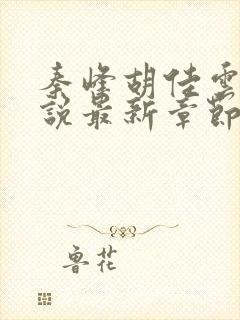 秦峰胡佳雲
說最新章節
魯花